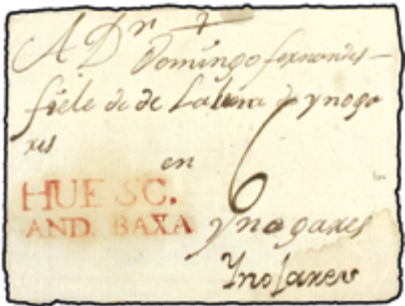 A Dn
Domingo fernandes
fiele de de La de ynoga
res
en
6
HUESC.
AND. BAXA
ynogares